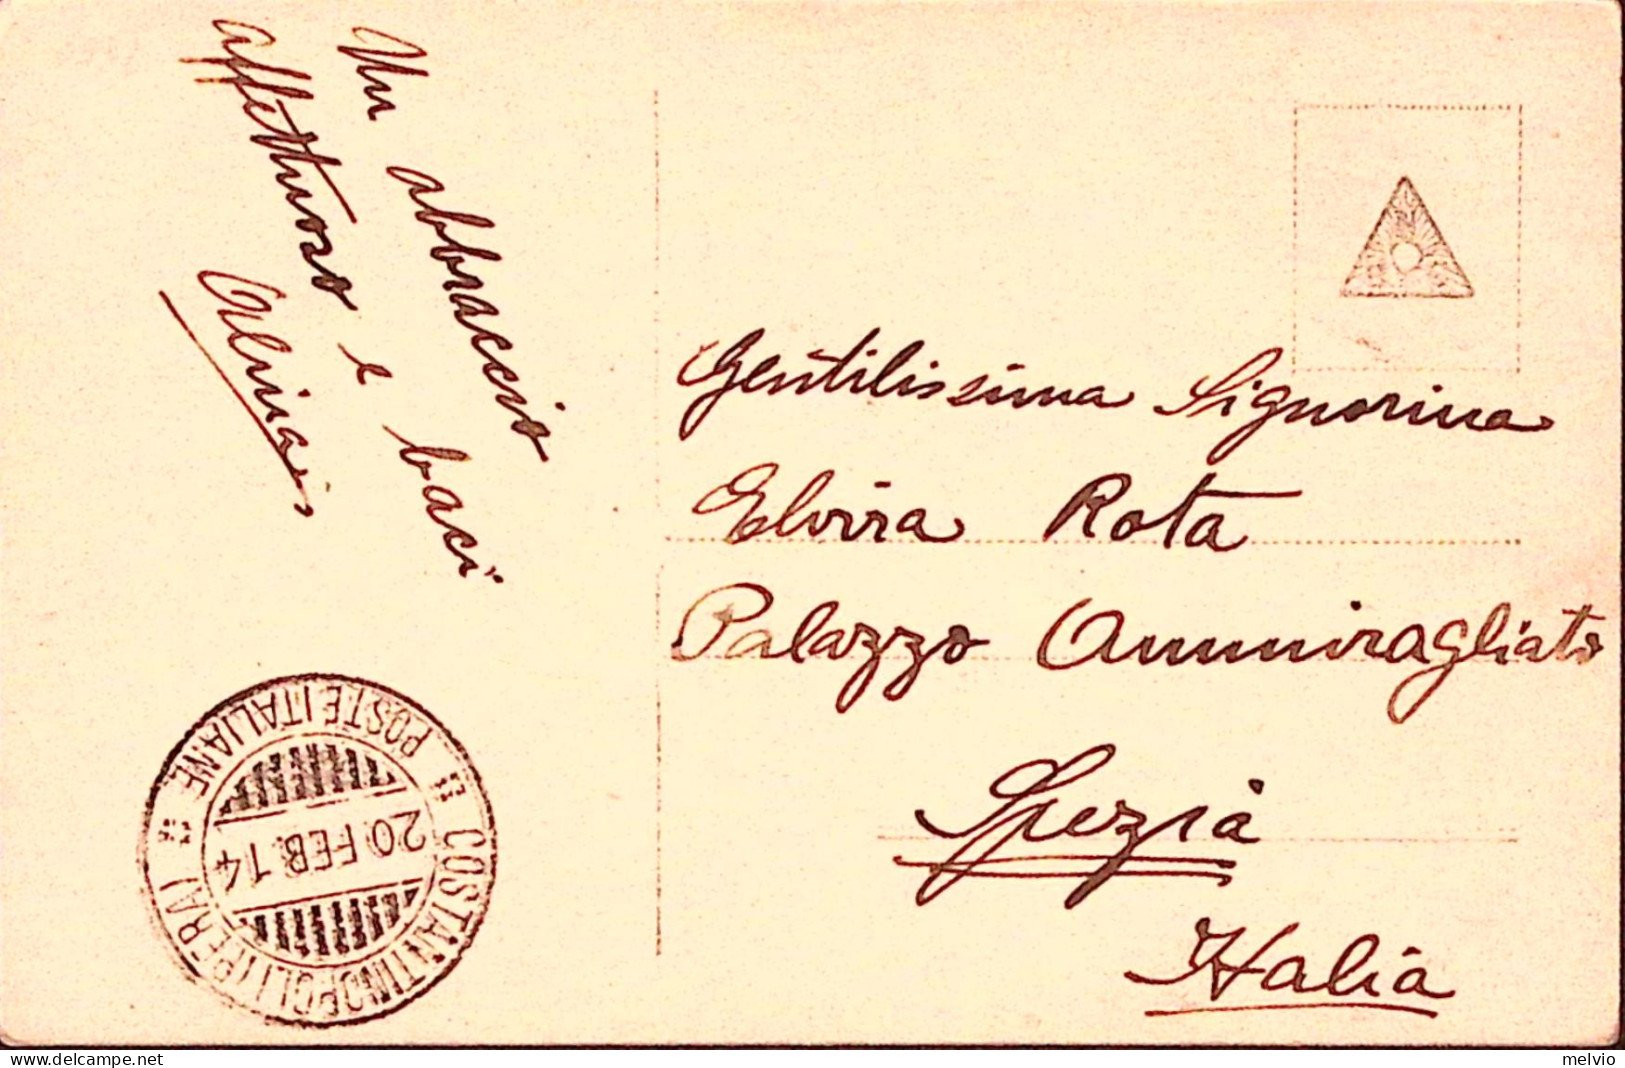 Un abbraccio
affettuoso e baci
Gentilissima Signorina
Elvira Rota
Palazzo Ammiragliato
Spezia
Italia
POSTE ITALIANE
COSTANTINOPOLI (PERA)
20 FEB. 14
delcampe.net
melvio